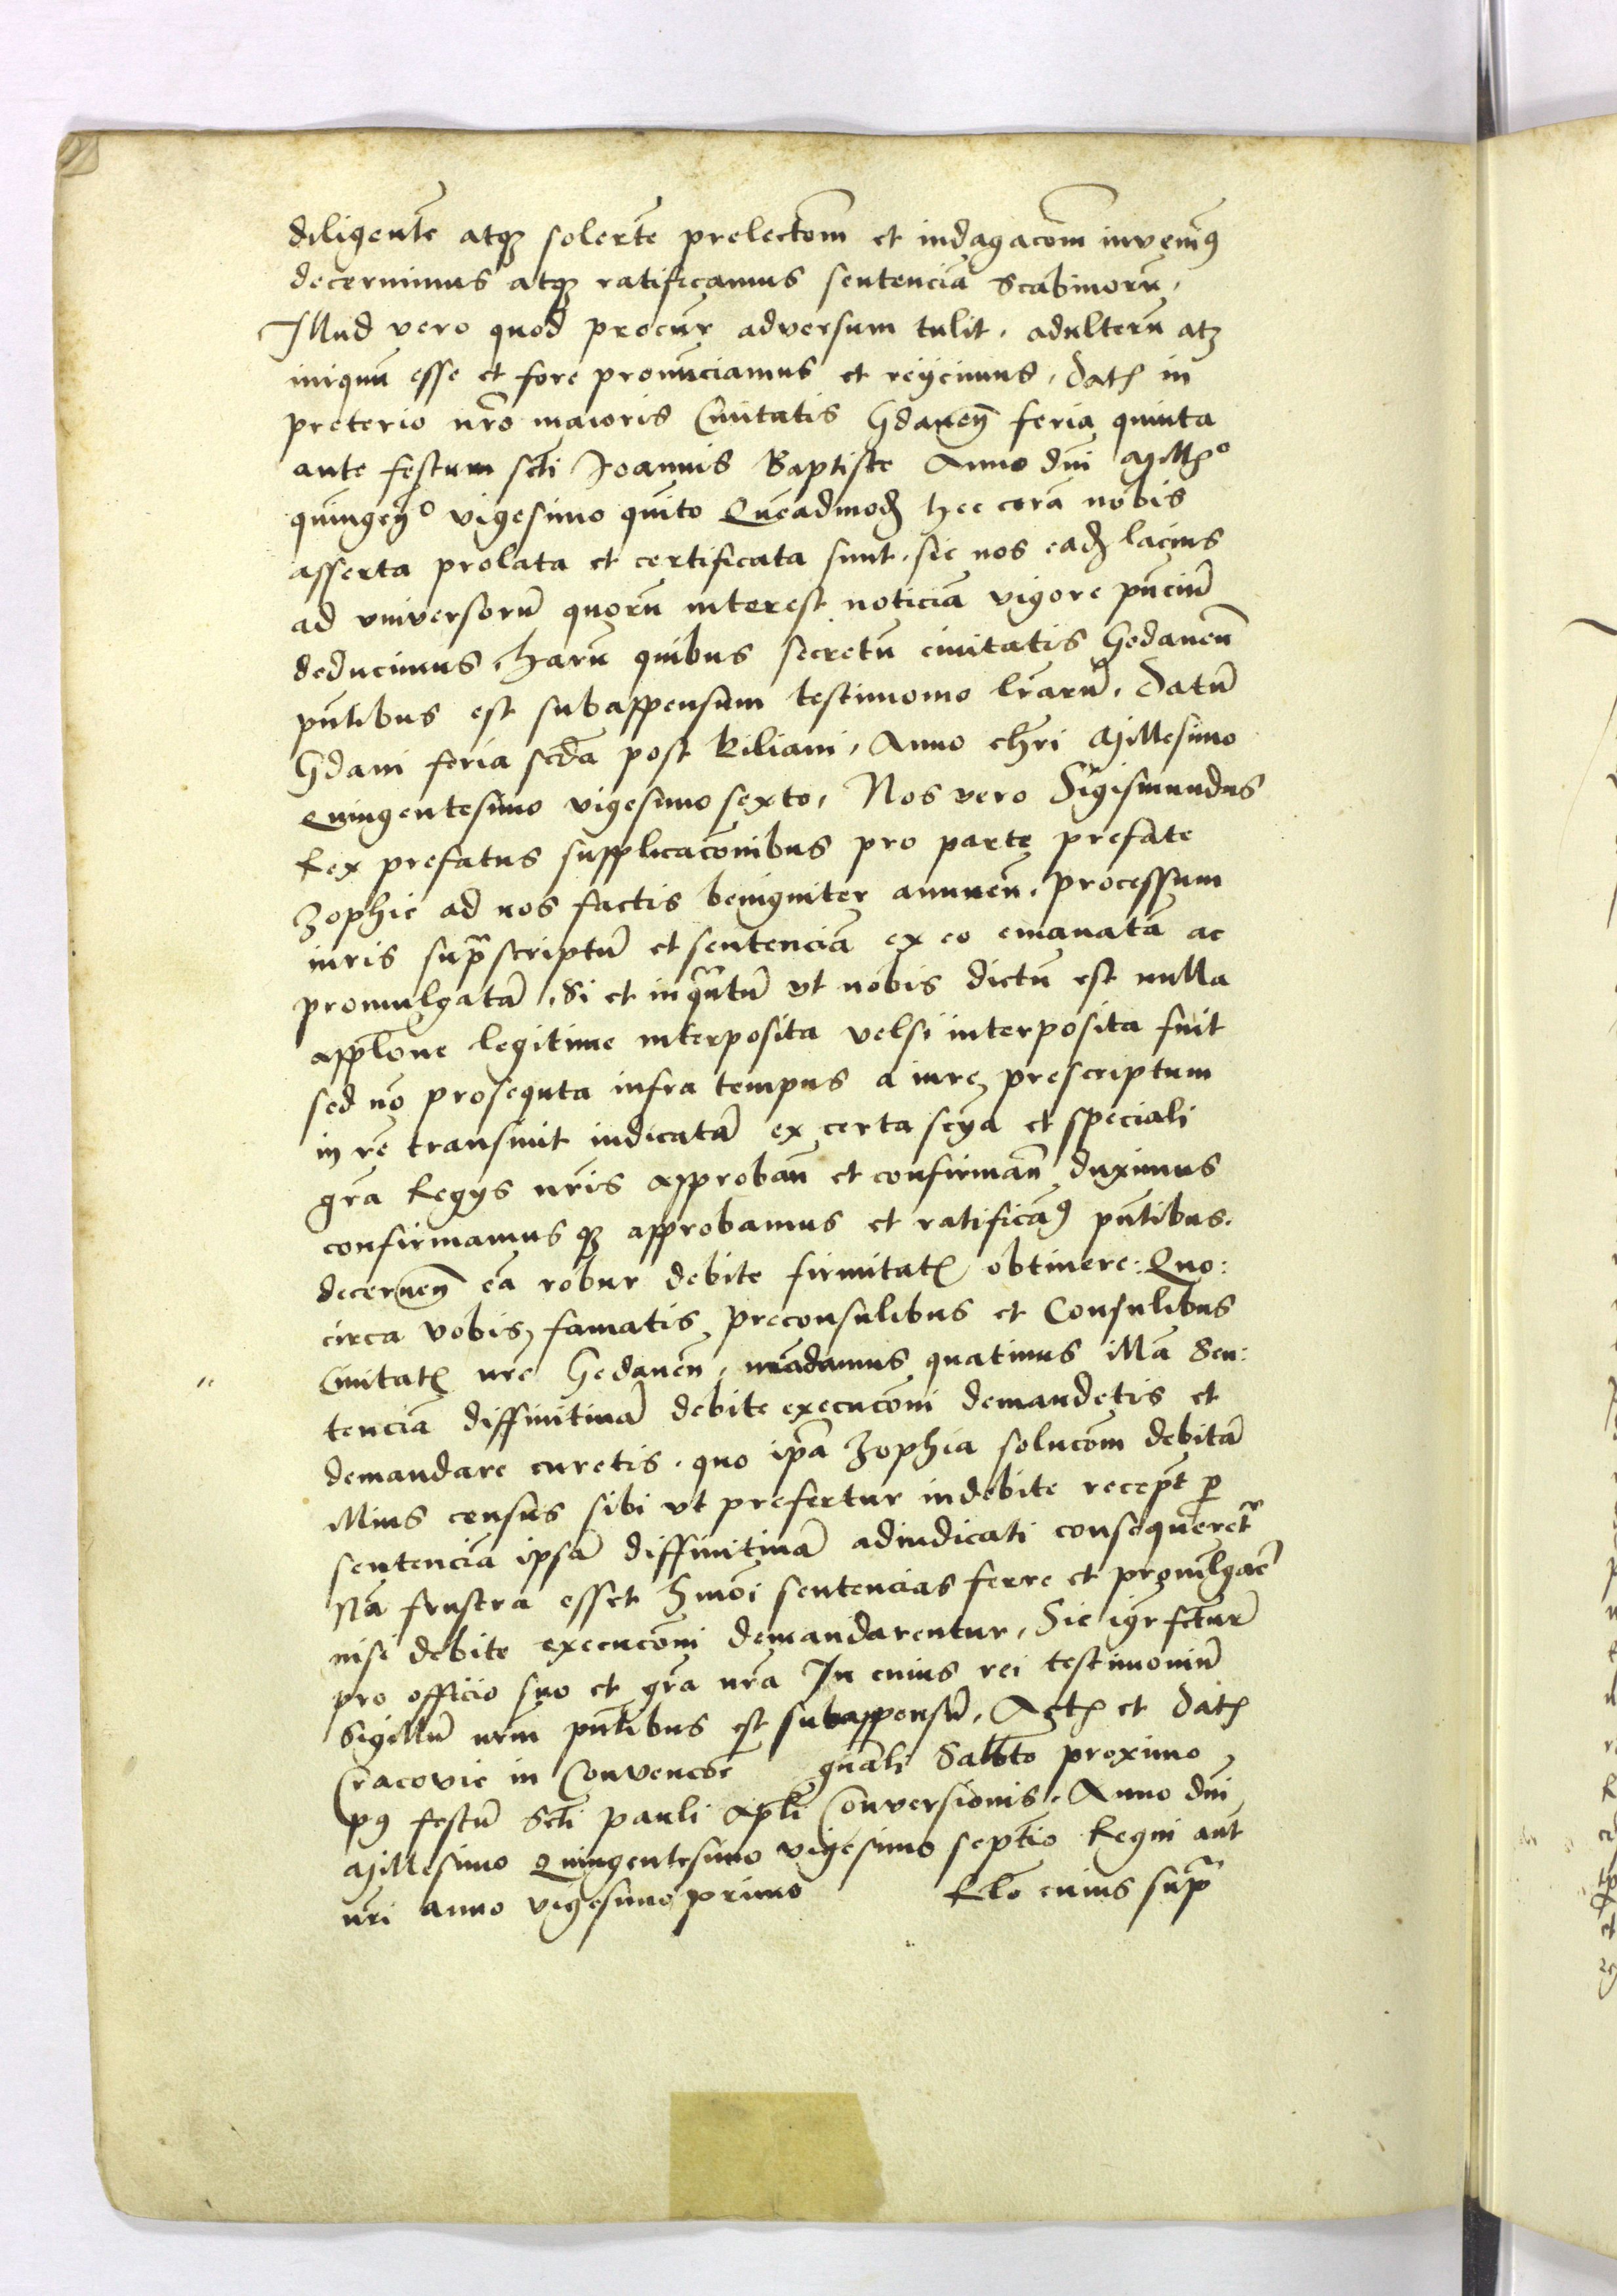 diligente atq3 solerte prelectom et indagacom invenim9
decernimus atq3 ratificamus sentenciā Scabinorū,
Illud vero quod procur adversum tulit, adulterū atq3
iniquū esse et fore pronunciamus et reijcimus, Dat in
preterio nr̄o maioris Civitatis Gdaneñ feria quinta
ante festum scti Joannis Baptiste Anno dni Mill°
quingen° vigesimo quīto Queadmod hec corā nobis
asserta prolata et certificata sunt, sic nos ead lacius
ad vniversorū quorū interest noticiā vigore pn̄ciū
deducimus, harū quibus secretū civitatis Gedaneñ
pn̄tibus est subappensum testimonio lr̄arū, Datū
Gdani feria scda post Kiliani, Anno chri Millesimo
Quingentesimo vigesimo sexto, Nos vero Sigismundus
Rex prefatus supplicacōnibus pro parte prefate
Zophie ad nos factis benigniter annueñ, processum
iuris supra scriptū et sentenciā ex eo emanatā ac
promulgatā, Si et inquātū vt nobis dictū est nulla
appl̄one legitime interposita velsi interposita fuit
sed nō prosequta infra tempus a iure prescriptum
in rē transivit iudicatā ex certa scya et speciali
gr̄a Regijs nr̄is approbañ et confirmañ duximus
confirmamus q3 approbamus et ratificam9 pn̄tibus,
decerneñ ea robur debite firmitat obtinere: Quo:
circa vobis, famatis preconsulibus et Consulibus
Civitat nr̄e Gedaneñ, mādamus quatinus illā Sen:
tenciā diffinitivā debite execucōni demandetis et
demandare curetis, quo ip̄a Zophia solucōm debitā
illius census sibi vt prefertur indebite recept p
sentenciā ipsā diffinitivā adiudicati consequeret
Nā frustra esset hmōi sentencias ferre et promulgare
nisi debite execucōni demandarentur, Sic igr fctur
pro officio suo et gr̄a nr̄a In cuius rei testimoniū
Sigillū nr̄m pn̄tibus est subappensū, Act et Dat
Cracovie in Convencōe gn̄ali Sabbto proximo
p9 festū Scti Pauli apl̄i Conversionis, Anno dni
Millesimo Quingentesimo vigesimo septīo Regni aut
nr̄i anno vigesimo primo Rl̄o cuius supr